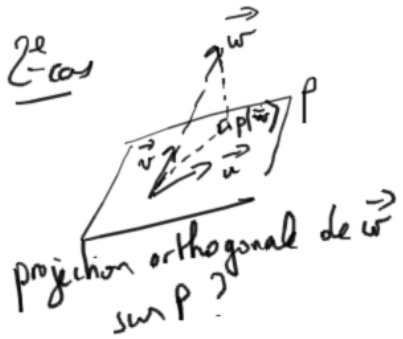 2e cas
w⃗
P
p(w⃗)
v⃗
u⃗
projection orthogonale de w⃗
sur P ?